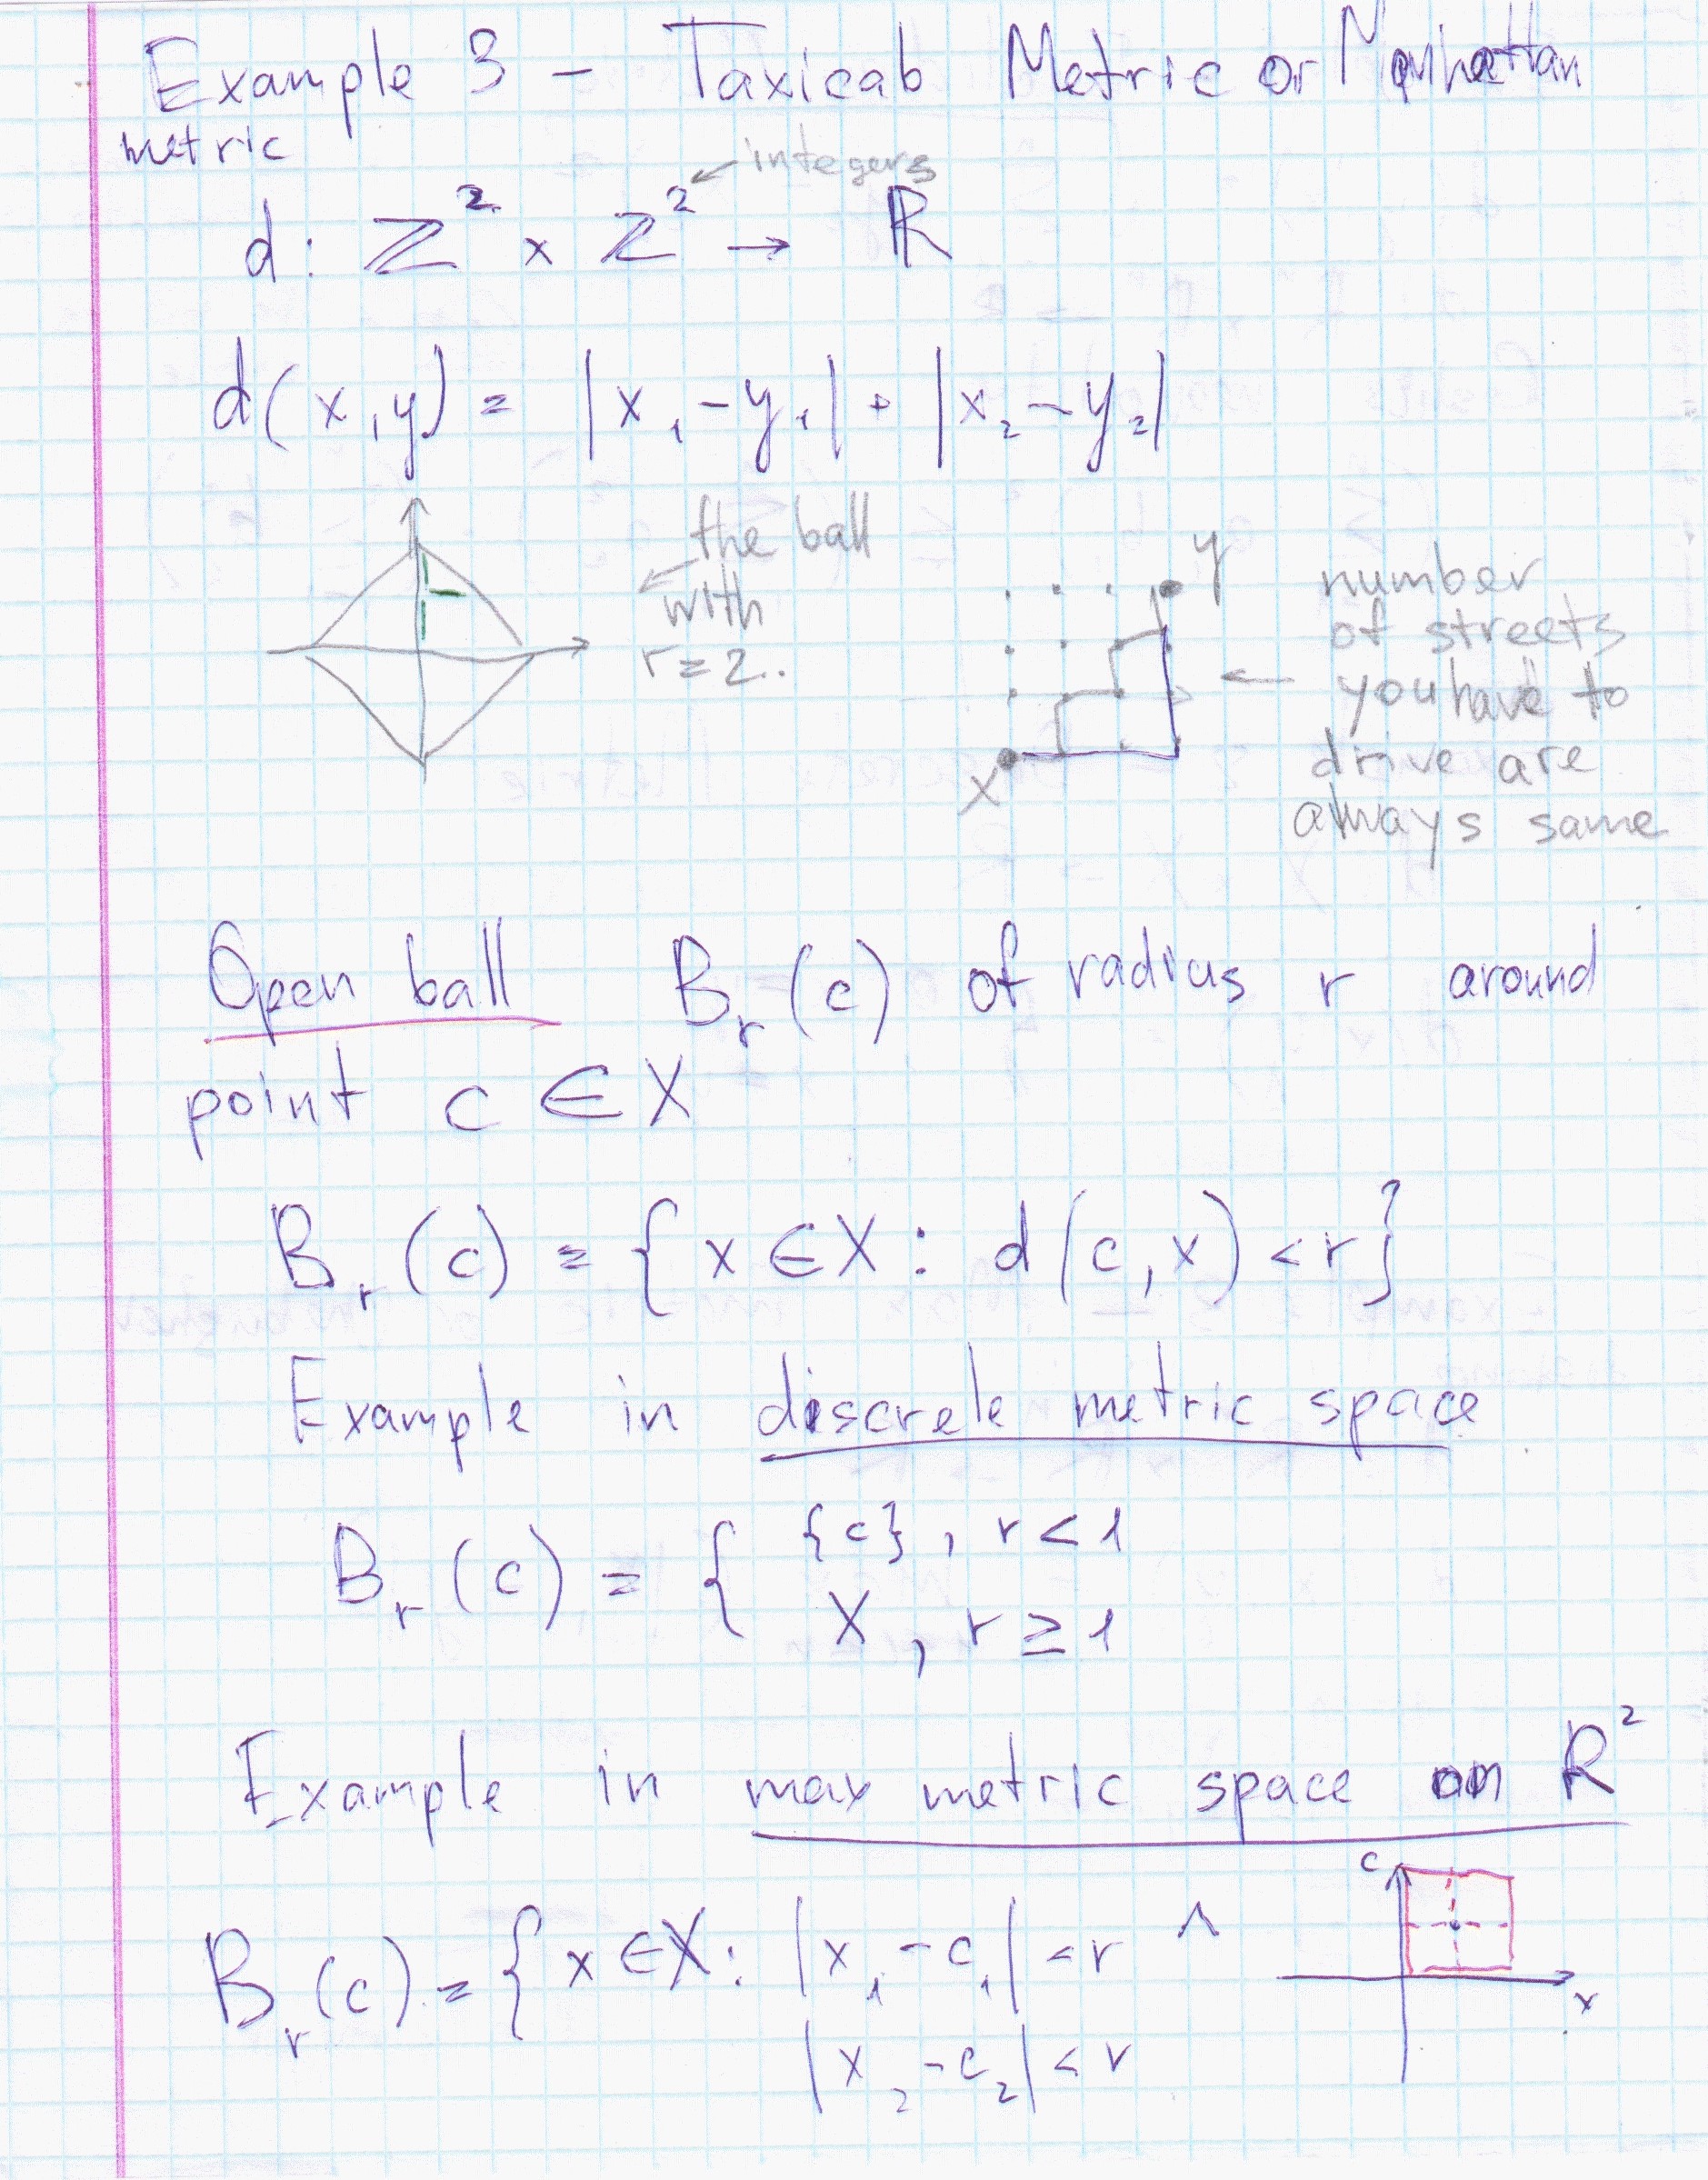 Example 3 - Taxicab Metric or Manhattan
metric
integers
d: ℤ² × ℤ² → ℝ
d(x,y) = |x₁-y₁| + |x₂-y₂|
the ball
with
r=2..
x
y
number
of streets
you have to
drive are
always same
Open ball Bᵣ(c) of radius r around
point c ∈ X
Bᵣ(c) = { x ∈ X : d(c,x) < r}
Example in discrete metric space
Bᵣ(c) = { {c}, r < 1
X, r ≥ 1
Example in max metric space on ℝ²
c
Bᵣ(c) = { x ∈ X: |x₁-c₁| < r ∧
x
|x₂-c₂| < r